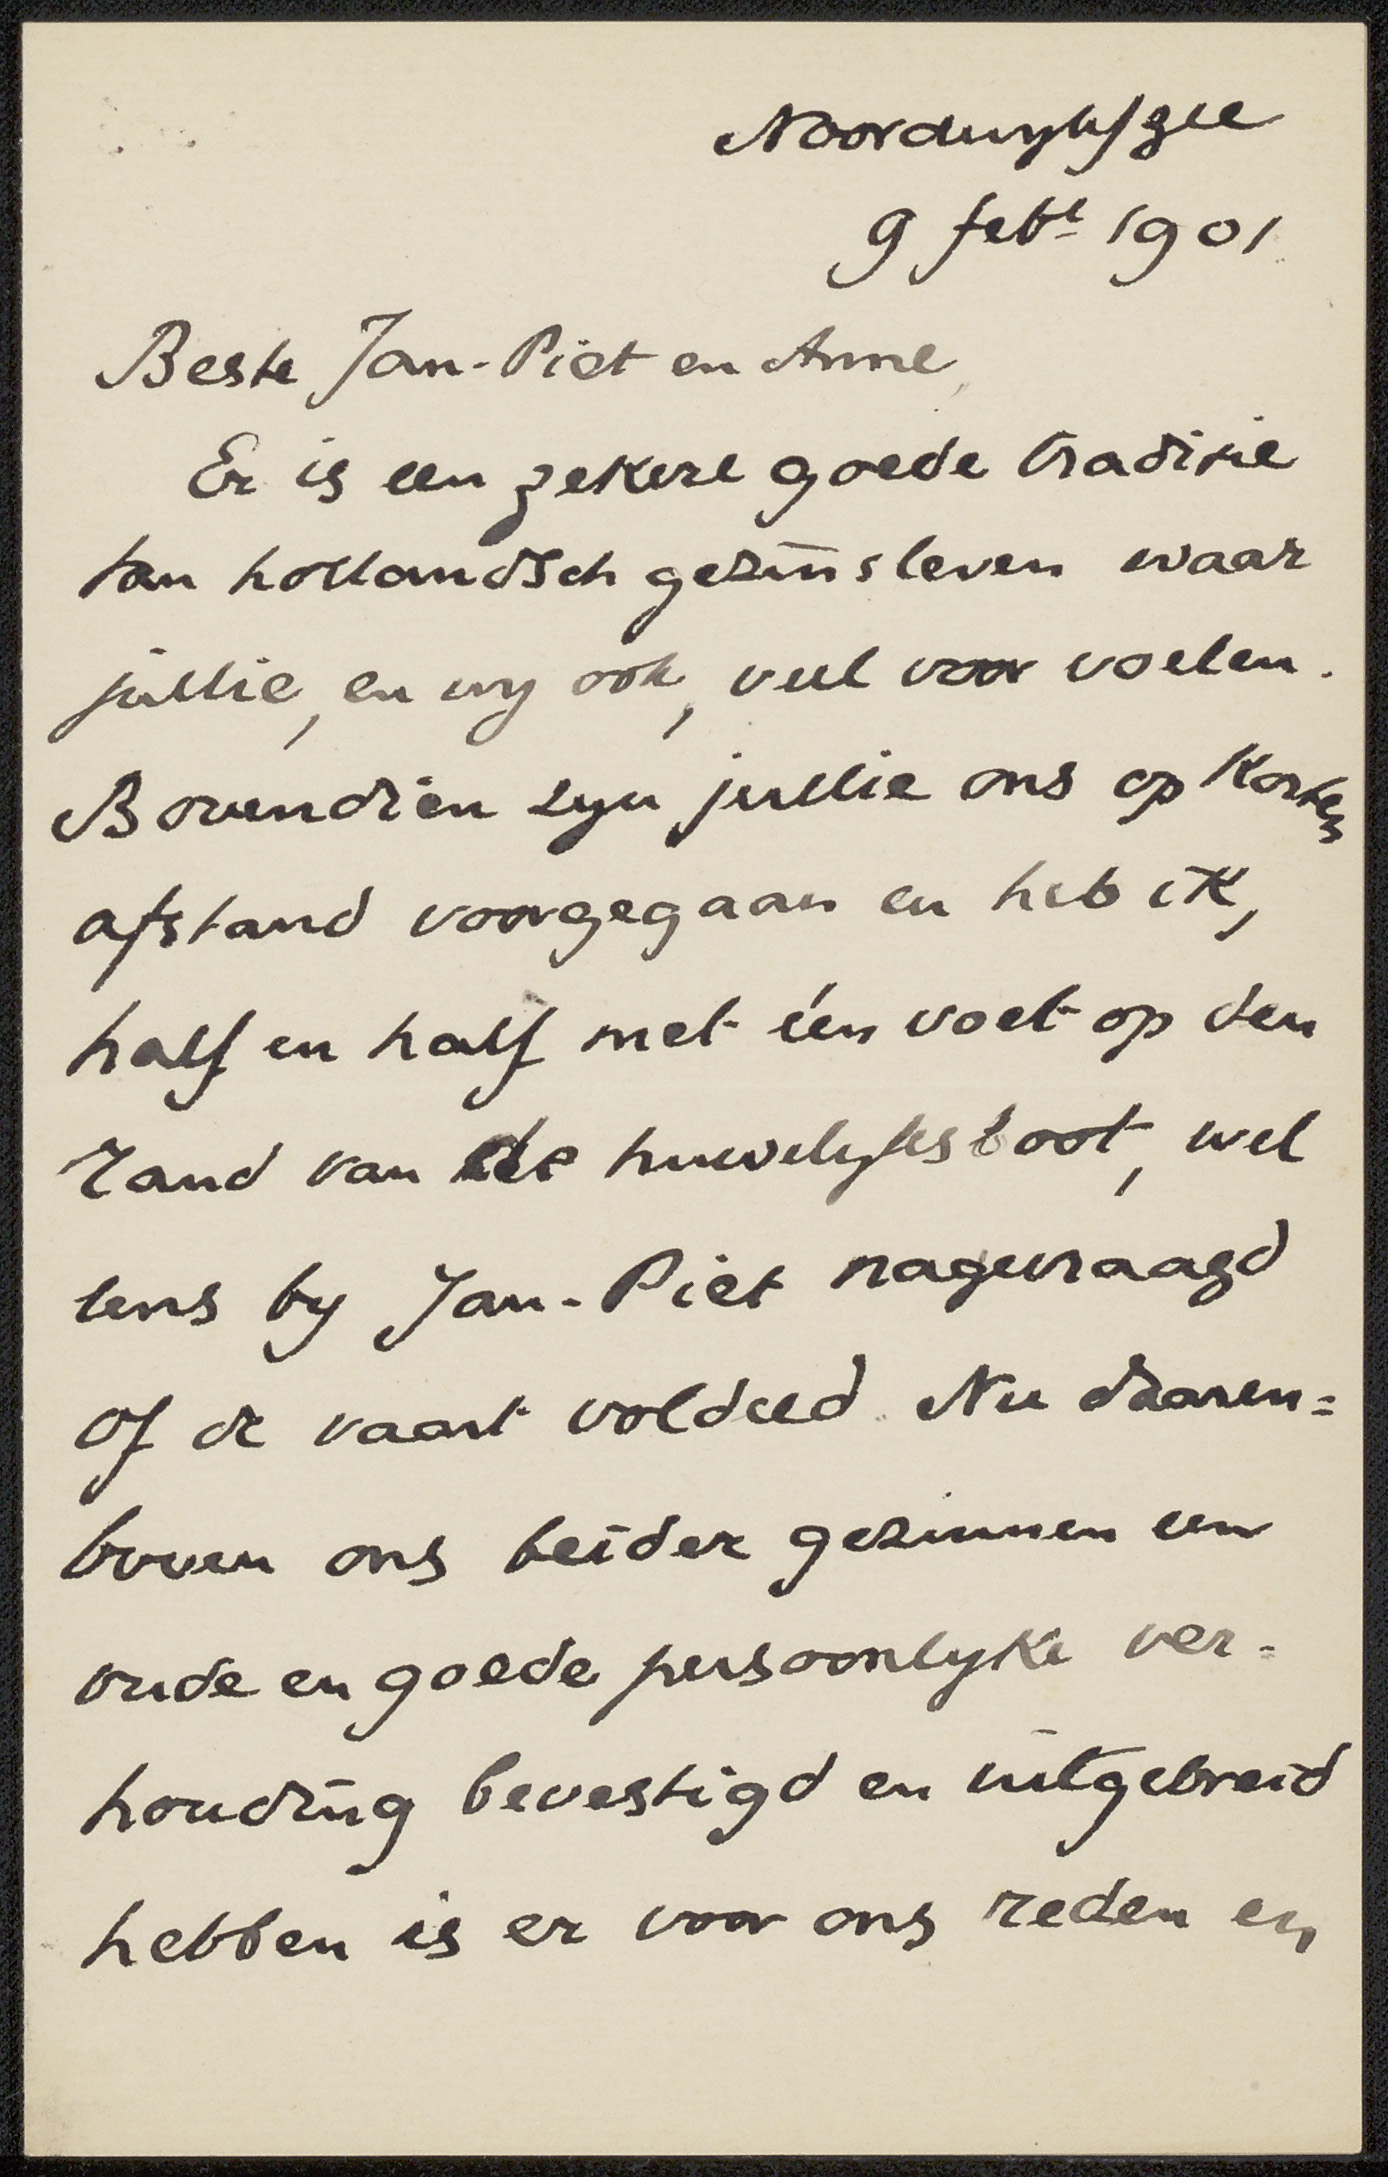 Noordwijk a/zee
9 febr 1901
Beste Jan-Piet en Anne,
Er is een zekere goede traditie
van hollandsch gezinsleven waar
jullie, en wy ook, veel voor voelen.
Bovendien zyn jullie ons op korten
afstand voorgegaan en heb ik,
half en half met één voet op den
rand van de huwelyksboot, wel
eens by Jan-Piet nagevraagd
of de vaart voldeed. Nu daaren=
boven ons beider gezinnen een
oude en goede persoonlyke ver=
houding bevestigd en uitgebreid
hebben is er voor ons reden en